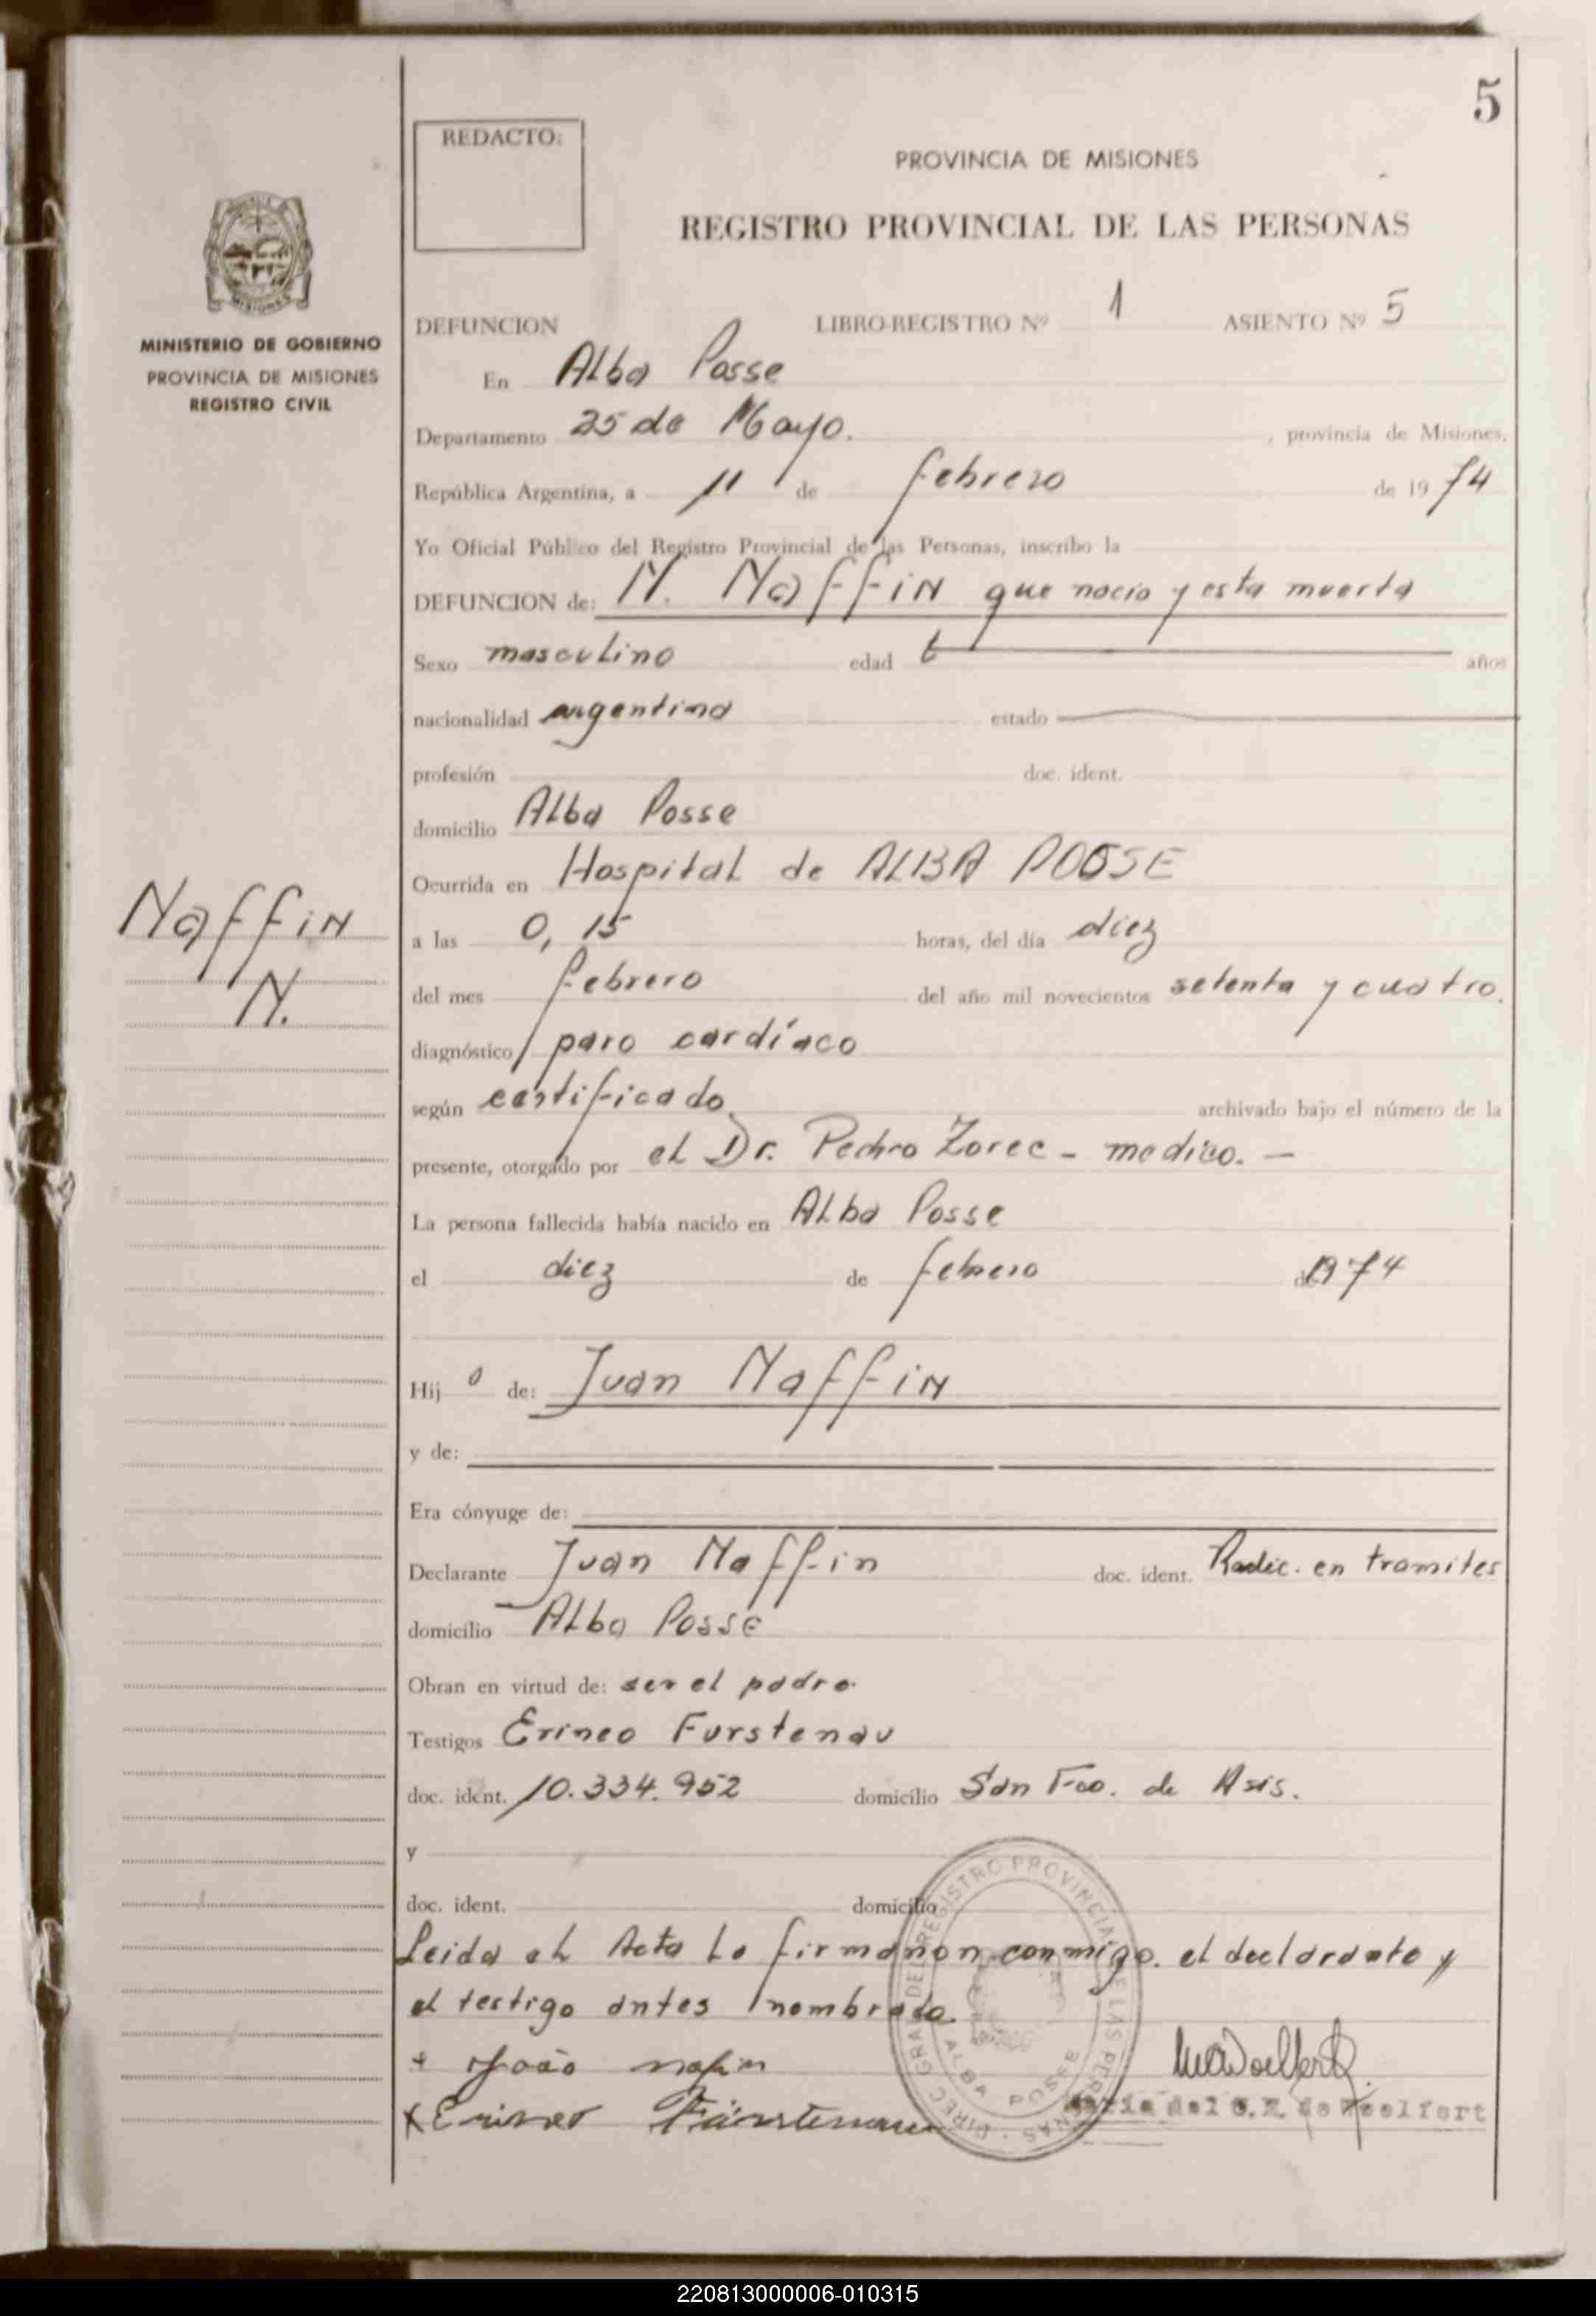 5
REDACTO:
PROVINCIA DE MISIONES
REGISTRO PROVINCIAL DE LAS PERSONAS
MISIONES
MINISTERIO DE GOBIERNO
PROVINCIA DE MISIONES
REGISTRO CIVIL
DEFUNCION LIBRO-REGISTRO Nº 1 ASIENTO Nº 5
En Alba Posse
Departamento 25 de Mayo. , provincia de Misiones,
República Argentina, a 11 de febrero de 19 74
Yo Oficial Público del Registro Provincial de las Personas, inscribo la
DEFUNCION de: N. Naffin que nacio y esta muerta
Sexo masculino edad años
nacionalidad argentina estado
profesión doc. ident.
domicilio Alba Posse
Ocurrida en Hospital de ALBA POOSE
Naffin
N.
a las 0, 15 horas, del día diez
del mes febrero del año mil novecientos setenta y cuatro.
diagnóstico paro cardíaco
según certificado archivado bajo el número de la
presente, otorgado por el Dr. Pedro Zorec - medico. -
La persona fallecida había nacido en Alba Posse
el diez de febrero de 1974
Hij o de: Juan Naffin
y de:
Era cónyuge de:
Declarante Juan Naffin doc. ident. Radic. en tramites
domicilio Alba Posse
Obran en virtud de: ser el padre.
Testigos Erineo Furstenau
doc. ident. 10.334.952 domicilio San Fco. de Asis.
y
doc. ident. domicilio
Leida el Acta lo firmanon conmigo. el declarante y
el testigo antes nombrado.
+ João nafin
x Erineo Fürstenau
DIREC. GRAL. DEL REGISTRO PROVINCIAL DE LAS PERSONAS
ALBA POSSE
Maria del C. R. de Woelfert
220813000006-010315